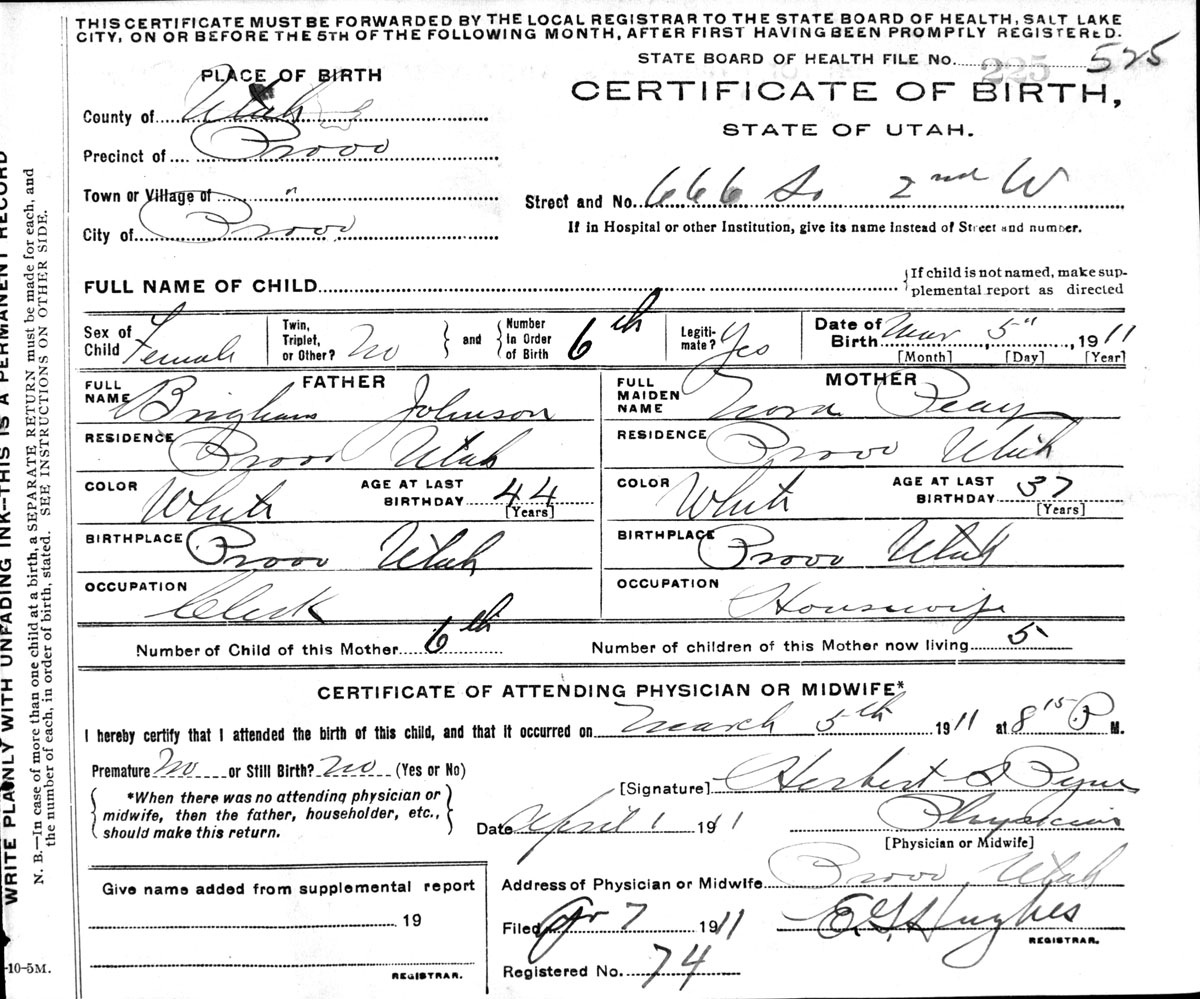 THIS CERTIFICATE MUST BE FORWARDED BY THE LOCAL REGISTRAR TO THE STATE BOARD OF HEALTH, SALT LAKE
CITY, ON OR BEFORE THE 5TH OF THE FOLLOWING MONTH, AFTER FIRST HAVING BEEN PROMPTLY REGISTERED.
STATE BOARD OF HEALTH FILE No. 225 525
PLACE OF BIRTH
CERTIFICATE OF BIRTH,
STATE OF UTAH.
County of Utah
Precinct of Provo
Town or Village of "
City of Provo
Street and No. 666 So 2nd W
If in Hospital or other Institution, give its name instead of Street and number.
FULL NAME OF CHILD
If child is not named, make sup-
plemental report as directed
Sex of Child Female
Twin, Triplet, or Other? No
and
Number In Order of Birth 6th
Legiti-mate? Yes
Date of Birth Mar 5" 1911
[Month] [Day] [Year]
FATHER
FULL NAME Brigham Johnson
RESIDENCE Provo Utah
COLOR White
AGE AT LAST BIRTHDAY 44
[Years]
BIRTHPLACE Provo Utah
OCCUPATION Clerk
MOTHER
FULL MAIDEN NAME Nora Peay
RESIDENCE Provo Utah
COLOR White
AGE AT LAST BIRTHDAY 37
[Years]
BIRTHPLACE Provo Utah
OCCUPATION Housewife
Number of Child of this Mother 6th
Number of children of this Mother now living 5
CERTIFICATE OF ATTENDING PHYSICIAN OR MIDWIFE*
I hereby certify that I attended the birth of this child, and that it occurred on March 5th 1911 at 8 15 P M.
Premature No or Still Birth? No (Yes or No)
*When there was no attending physician or
midwife, then the father, householder, etc.,
should make this return.
[Signature] Herbert S Pyne
Date April 1 1911
Physician
[Physician or Midwife]
Give name added from supplemental report
19
REGISTRAR.
Address of Physician or Midwife Provo Utah
Filed Apr 7 1911
E. G. Hughes
REGISTRAR.
Registered No. 74
-10-5M.
WRITE PLAINLY WITH UNFADING INK—THIS IS A PERMANENT RECORD
N. B.—In case of more than one child at a birth, a SEPARATE RETURN must be made for each, and
the number of each, in order of birth, stated. SEE INSTRUCTIONS ON OTHER SIDE.